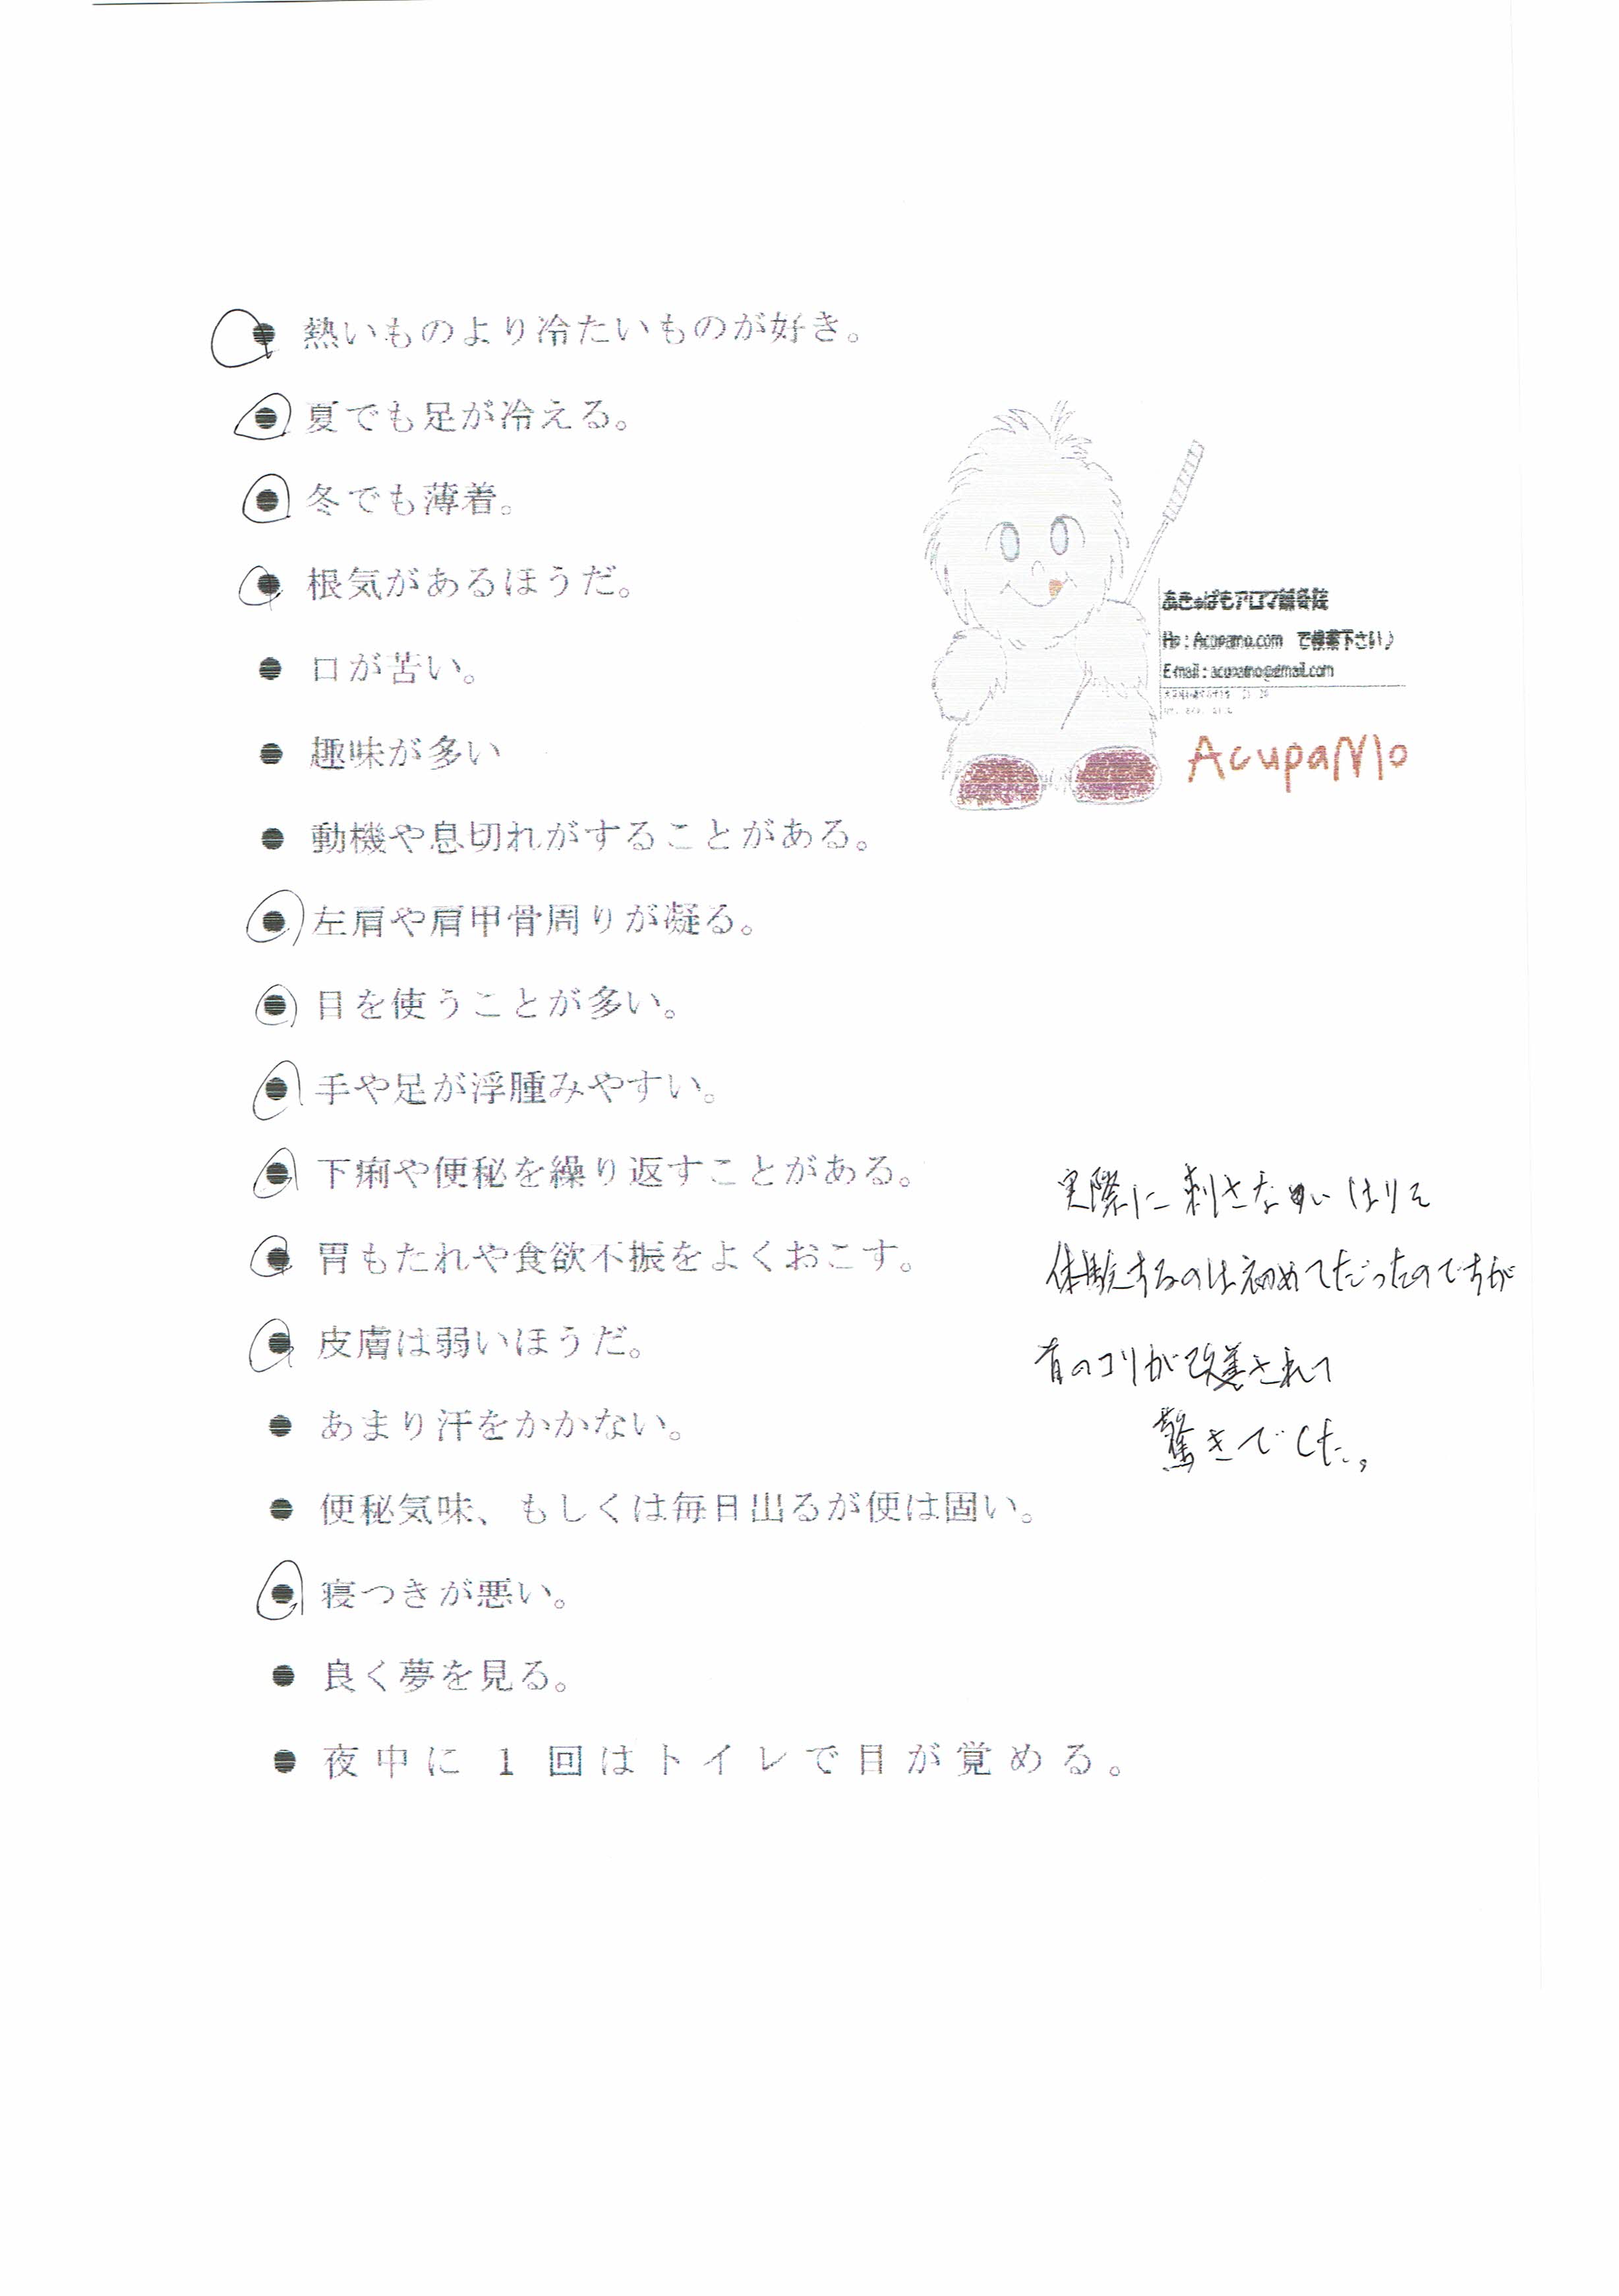 ● 熱いものより冷たいものが好き。
● 夏でも足が冷える。
● 冬でも薄着。
● 根気があるほうだ。
● 口が苦い。
● 趣味が多い
● 動機や息切れがすることがある。
● 左肩や肩甲骨周りが凝る。
● 目を使うことが多い。
● 手や足が浮腫みやすい。
● 下痢や便秘を繰り返すことがある。
● 胃もたれや食欲不振をよくおこす。
● 皮膚は弱いほうだ。
● あまり汗をかかない。
● 便秘気味、もしくは毎日出るが便は固い。
● 寝つきが悪い。
● 良く夢を見る。
● 夜中に 1 回はトイレで目が覚める。
あきゅぱもアロマ鍼灸院
Hp : Acupamo.com で検索下さい♪
E-mail : acupamo@gmail.com
AcupaMo
実際に刺さないはりを
体験するのは初めてだったのですが
首のコリが改善されて
驚きでした。